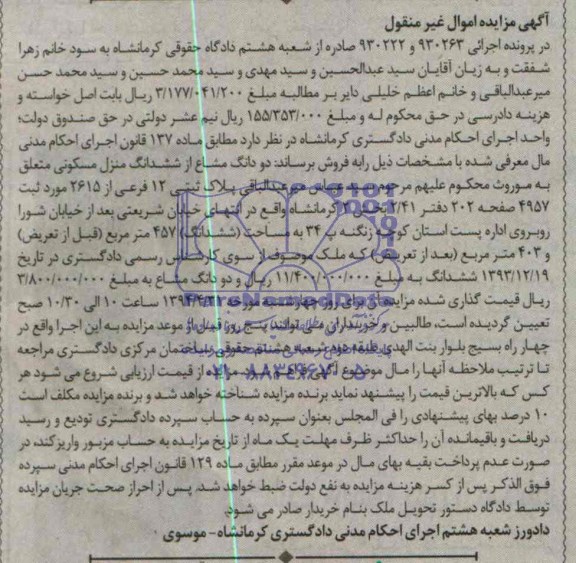 آگهی مزایده اموال غیر منقول
در پرونده اجرائی ۹۳۰۲۶۳ و ۹۳۰۲۲۲ صادره از شعبه هشتم دادگاه حقوقی کرمانشاه به سود خانم زهرا
شفقت و به زیان آقایان سید عبدالحسین و سید مهدی و سید محمد حسین و سید محمد حسن
میرعبدالباقی و خانم اعظم خلیلی دایر بر مطالبه مبلغ ۳/۱۷۷/۰۴۱/۲۰۰ ریال بابت اصل خواسته و
هزینه دادرسی در حق محکوم له و مبلغ ۱۵۵/۳۵۳/۰۰۰ ریال نیم عشر دولتی در حق صندوق دولت؛
واحد اجرای احکام مدنی دادگستری کرمانشاه در نظر دارد مطابق ماده ۱۳۷ قانون اجرای احکام مدنی
مال معرفی شده با مشخصات ذیل رابه فروش برساند: دو دانگ مشاع از ششدانگ منزل مسکونی متعلق
به موروث محکوم علیهم مرحوم سید عباس میرعبدالباقی پلاک ثبتی ۱۲ فرعی از ۲۶۱۵ مورد ثبت
۴۹۵۷ صفحه ۲۰۲ دفتر ۲/۴۱ بخش کرمانشاه واقع در انتهای خیابان شریعتی بعد از خیابان شورا
روبروی اداره پست استان کوچه زنگنه پ ۳۴ به مساحت (ششدانگ) ۴۵۷ متر مربع (قبل از تعریض)
و ۴۰۳ متر مربع (بعد از تعریض) که ملک موصوف از سوی کارشناس رسمی دادگستری در تاریخ
۱۳۹۳/۱۲/۱۹ ششدانگ به مبلغ ۱۱/۴۰۰/۰۰۰/۰۰۰ ریال و دو دانگ مشاع به مبلغ ۳/۸۰۰/۰۰۰/۰۰۰
ریال قیمت گذاری شده مزایده آن برای روز چهارشنبه مورخه ساعت ۱۰ الی ۱۰/۳۰ صبح
تعیین گردیده است، طالبین و خریداران می توانند پنج روز قبل از موعد مزایده به این اجرا واقع در
چهار راه بسیج بلوار بنت الهدی طبقه دوم شعبه هشتم حقوقی ساختمان مرکزی دادگستری مراجعه
تا ترتیب ملاحظه آنها را مال موضوع آگهی مزایده از قیمت ارزیابی شروع می شود هر
کس که بالاترین قیمت را پیشنهد نماید برنده مزایده شناخته خواهد شد و برنده مزایده مکلف است
۱۰ درصد بهای پیشنهادی را فی المجلس بعنوان سپرده به حساب سپرده دادگستری تودیع و رسید
دریافت و باقیمانده آن را حداکثر ظرف مهلت یک ماه از تاریخ مزایده به حساب مزبور واریز کند، در
صورت عدم پرداخت بقیه بهای مال در موعد مقرر مطابق ماده ۱۲۹ قانون اجرای احکام مدنی سپرده
فوق الذکر پس از کسر هزینه مزایده به نفع دولت ضبط خواهد شد. پس از احراز صحت جریان مزایده
توسط دادگاه دستور تحویل ملک بنام خریدار صادر می شود.
دادورز شعبه هشتم اجرای احکام مدنی دادگستری کرمانشاه- موسوی